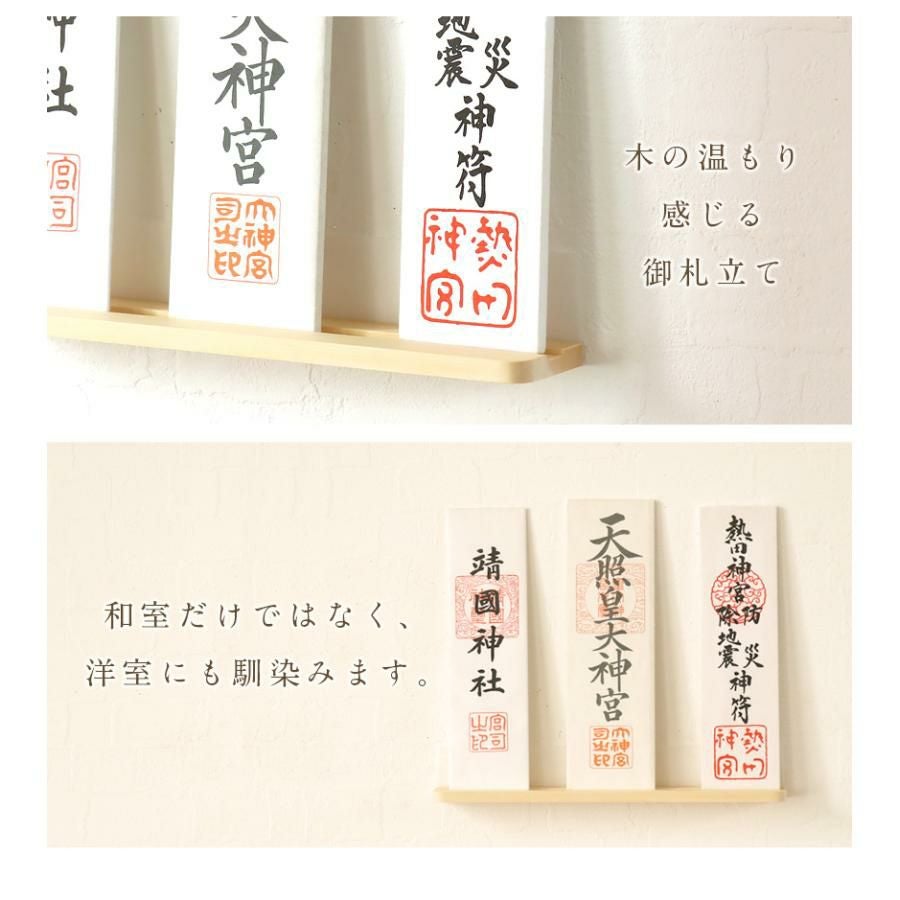 神
社
宮司
大神宮
大神宮
司之印
地震災
神符
熱田
神宮
木の温もり
感じる
御札立て
和室だけではなく、
洋室にも馴染みます。
靖國神社
宮司
之印
天照皇大神宮
大神宮
司之印
熱田神宮防
除地震災
神符
熱田
神宮